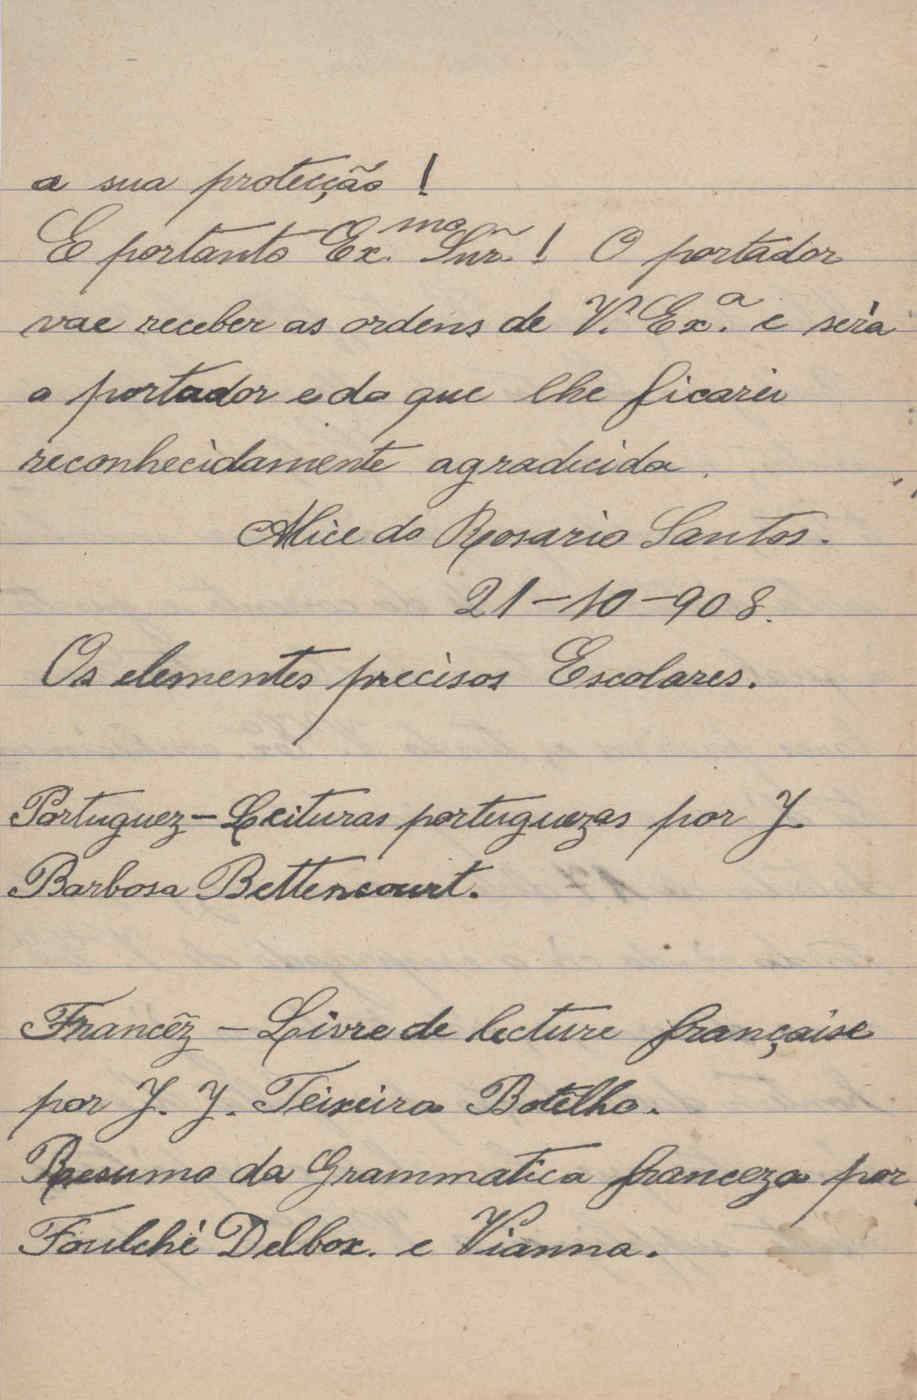 a sua protecção!
E portanto Ex.mo Snr.! O portador
vae receber as ordens de V. Ex.a e será
o portador e do que lhe ficarei
reconhecidamente agradicida.
Alice do Rosario Santos.
21-10-908.
Os elementos precisos Escolares.
Portuguez - Leituras portuguezas por J.
Barbosa Bettencourt.
Francêz - Livre de lecture française
por J. J. Teixeira Botelho.
Resumo da Grammatica franceza por
Foulché Delbox. e Vianna.